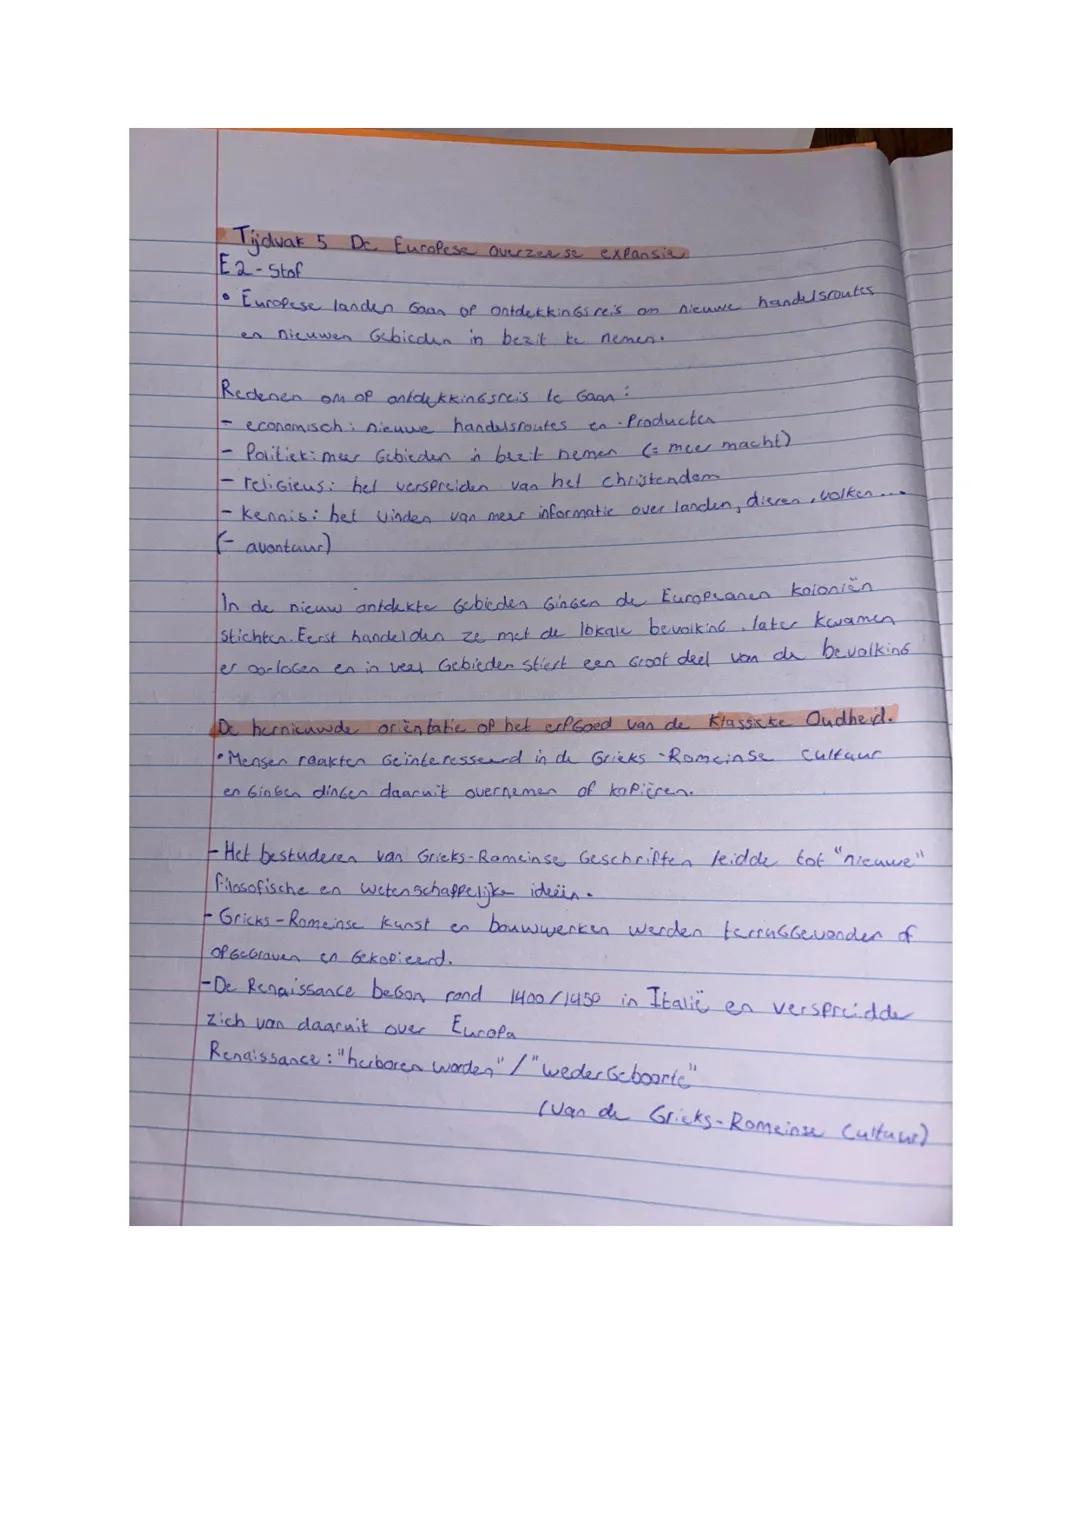 Tijdvak 5 De Europese overzeese expansie
E2-Stof
• Europese landen Gaan op ontdekkingsreis om nieuwe handelsroutes
en nieuwen Gebieden in bezit te nemen.
Redenen om op ontdekkingsreis te Gaan:
- economisch: nieuwe handelsroutes en Producten
- Politiek: meer Gebieden in bezit nemen (= meer macht)
- religieus: het verspreiden van het christendom
- kennis: het vinden van meer informatie over landen, dieren, volken...
(- avontuur)
In de nieuw ontdekte Gebieden Gingen de Europeanen koloniën
stichten. Eerst handelden ze met de lokale bevolking. later kwamen
er oorlogen en in veel Gebieden stierf een Groot deel van de bevolking
De hernieuwde oriëntatie op het erfGoed van de Klassieke Oudheid.
• Mensen raakten Geïnteresseerd in de Grieks-Romeinse cultuur
en Gingen dingen daaruit overnemen of kopiëren.
- Het bestuderen van Grieks-Romeinse Geschriften leidde tot "nieuwe"
filosofische en wetenschappelijke ideeën.
- Grieks-Romeinse kunst en bouwwerken werden terruGGevonden of
opGeGraven en Gekopieerd.
- De Renaissance beGon rond 1400/1450 in Italië en verspreidde
zich van daaruit over Europa
Renaissance: "herboren worden" / "wederGeboorte"
(van de Grieks-Romeinse Cultuur)